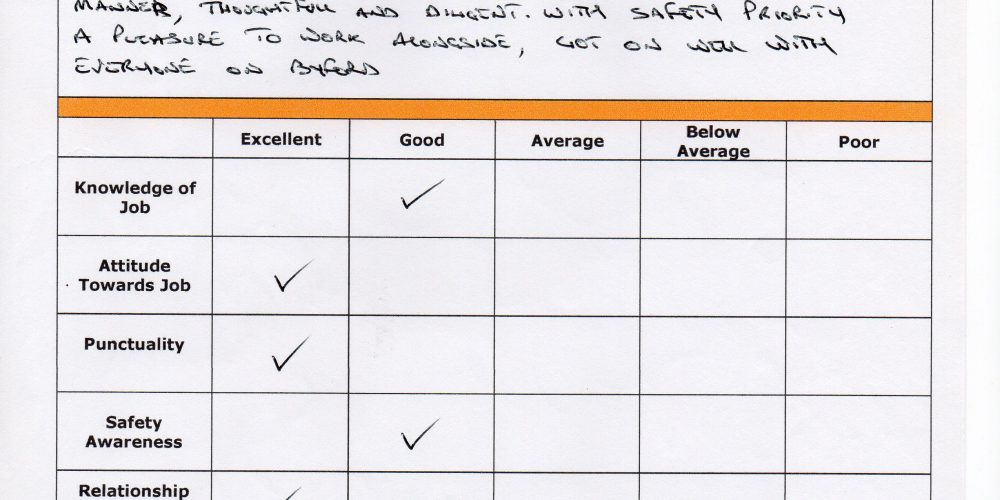 MANNER, THOUGHTFULL AND DILIGENT. WITH SAFETY PRIORITY
A PLEASURE TO WORK ALONGSIDE, GOT ON WELL WITH
EVERYONE ON BYFORD
Excellent Good Average Below Average Poor
Knowledge of
Job
Attitude
Towards Job
Punctuality
Safety
Awareness
Relationship